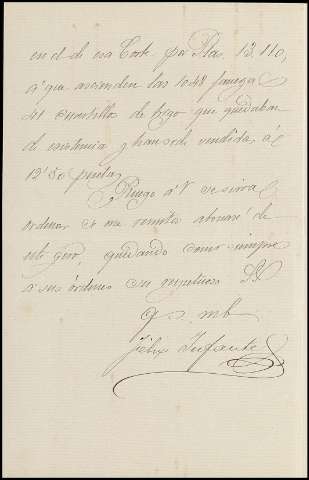 en el de esa Corte por Ptas. 13.110,
á que ascienden las 1048 fanegas
41 cuartillos de trigo que quedaban
de existencia y han sido vendidas á
12'50 pesetas
Ruego á V se sirva
ordenar se me remita abonaré de
este giro, quedando como siempre
a sus órdenes su respetuoso S.S.
q s. m b
Félix Infante